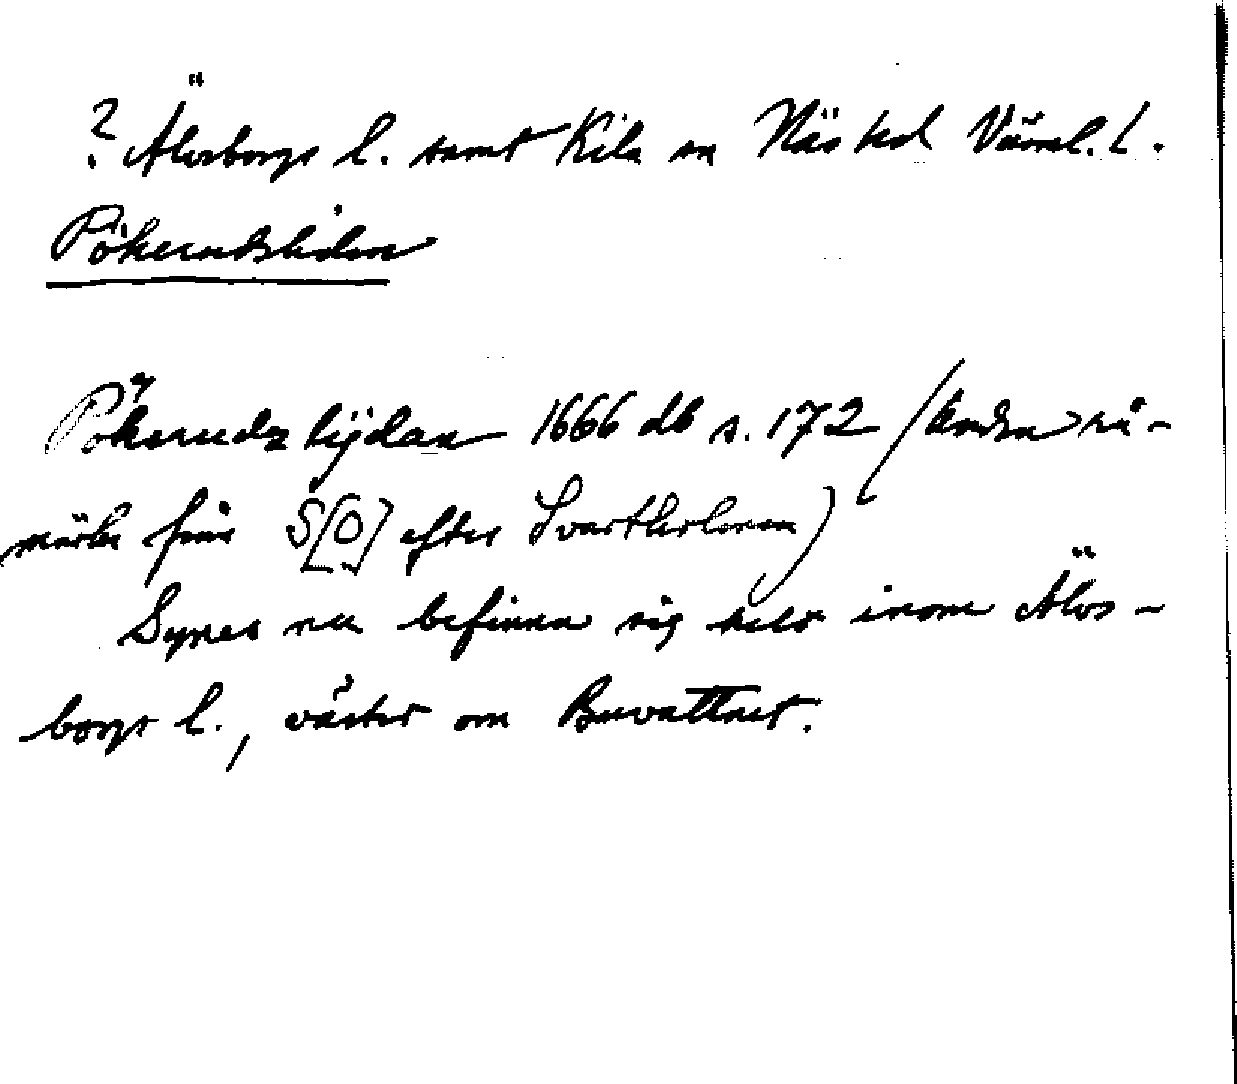 ? Älvsborgs l. samt Kila sn Näs hd Värml. l.
Pökerudsliden
Pökerudz lijdan 1666 db s. 172 (Andra rå-
märke från S[O] efter Svartkleven)
Synes nu befinna sig helt inom Älvs-
borgs l., väster om Buvattnet.